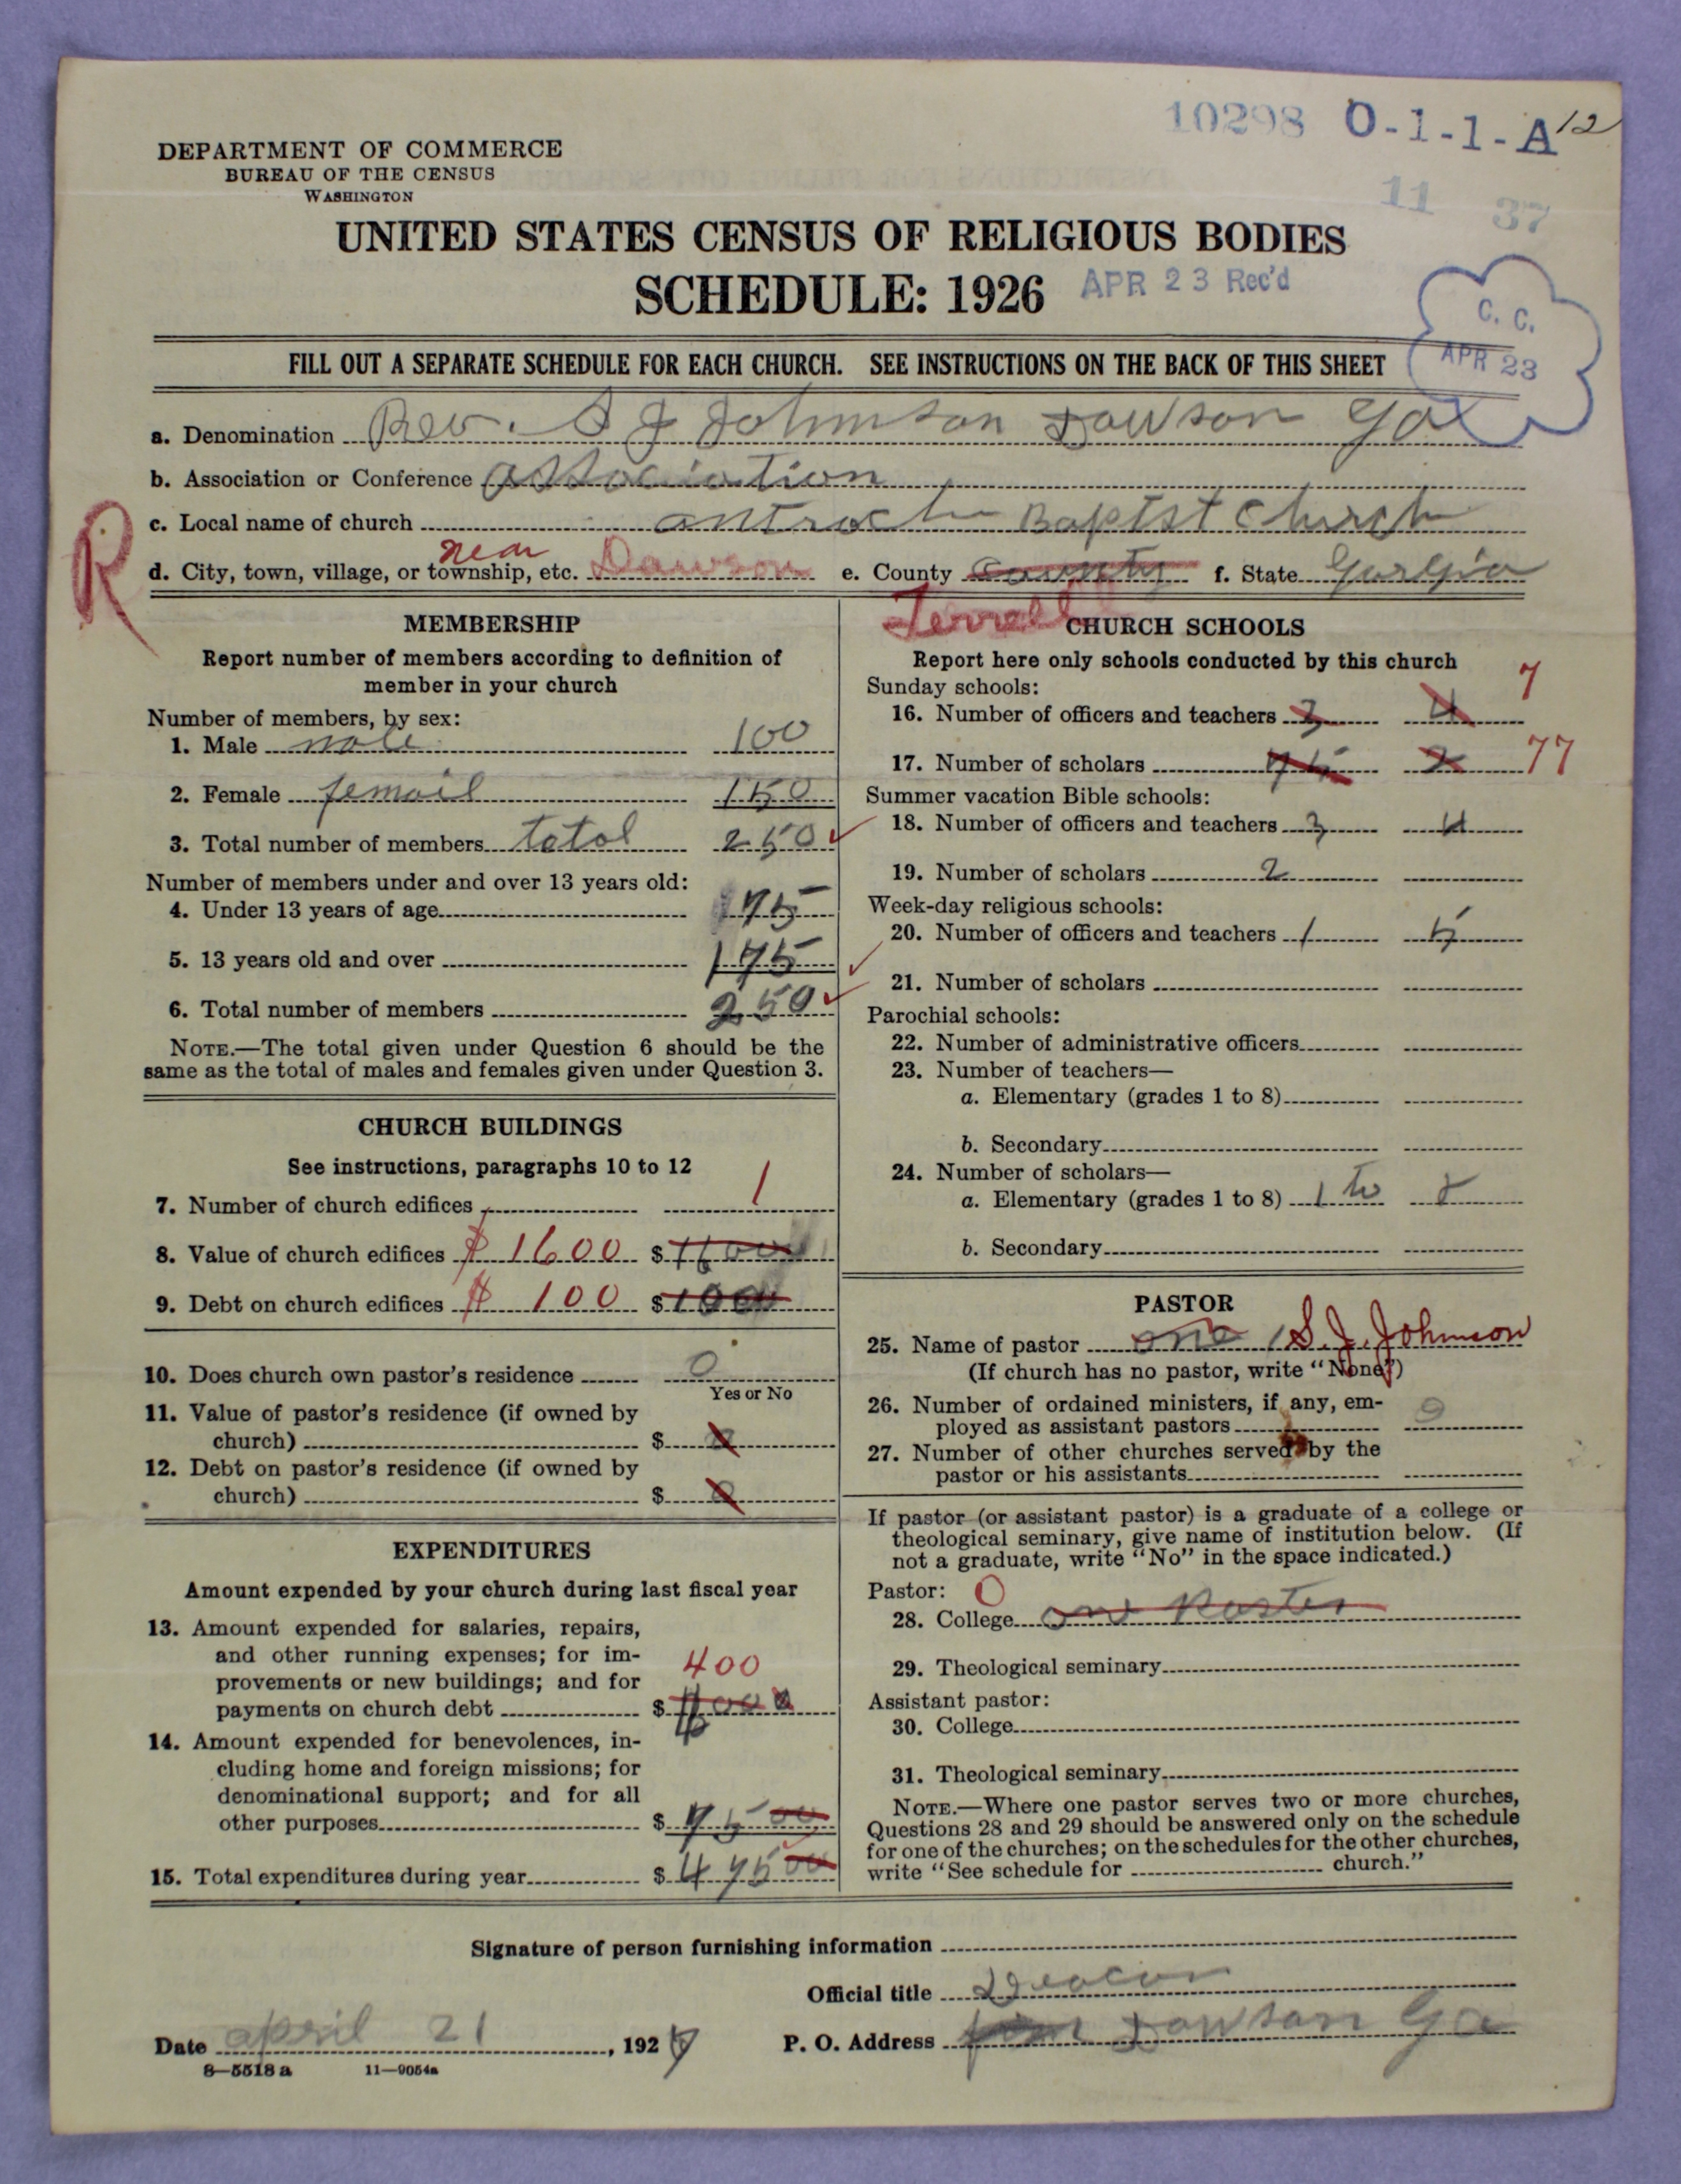 10298 O-1-1-A 12
DEPARTMENT OF COMMERCE
BUREAU OF THE CENSUS
WASHINGTON
11 37
UNITED STATES CENSUS OF RELIGIOUS BODIES
SCHEDULE: 1926 APR 23 Rec'd
C. C.
APR 23
FILL OUT A SEPARATE SCHEDULE FOR EACH CHURCH. SEE INSTRUCTIONS ON THE BACK OF THIS SHEET
a. Denomination Rev. S J Johnson Dawson Ga
b. Association or Conference association
c. Local name of church antioch Baptist Church
R
near
d. City, town, village, or township, etc. Dawson e. County County f. State Gorgia
Terrell
MEMBERSHIP
Report number of members according to definition of
member in your church
Number of members, by sex:
1. Male male 100
2. Female femail 150
3. Total number of members total 250
Number of members under and over 13 years old:
4. Under 13 years of age 75
5. 13 years old and over 175
6. Total number of members 250
NOTE.—The total given under Question 6 should be the
same as the total of males and females given under Question 3.
CHURCH BUILDINGS
See instructions, paragraphs 10 to 12
7. Number of church edifices 1
8. Value of church edifices $ 1600 $ 1600
9. Debt on church edifices $ 100 $ 100
10. Does church own pastor's residence 0
Yes or No
11. Value of pastor's residence (if owned by
church) $ 0
12. Debt on pastor's residence (if owned by
church) $ 0
EXPENDITURES
Amount expended by your church during last fiscal year
13. Amount expended for salaries, repairs,
and other running expenses; for im-
provements or new buildings; and for 400
payments on church debt $
14. Amount expended for benevolences, in-
cluding home and foreign missions; for
denominational support; and for all
other purposes $ 75 00
15. Total expenditures during year $ 475 00
CHURCH SCHOOLS
Report here only schools conducted by this church
Sunday schools: 7
16. Number of officers and teachers 3 4
17. Number of scholars 75 2 77
Summer vacation Bible schools:
18. Number of officers and teachers 3 4
19. Number of scholars 2
Week-day religious schools:
20. Number of officers and teachers 1 5
21. Number of scholars
Parochial schools:
22. Number of administrative officers
23. Number of teachers—
a. Elementary (grades 1 to 8)
b. Secondary
24. Number of scholars—
a. Elementary (grades 1 to 8) 1 to 8
b. Secondary
PASTOR
25. Name of pastor one 1 S. J. Johnson
(If church has no pastor, write "None")
26. Number of ordained ministers, if any, em-
ployed as assistant pastors
27. Number of other churches served by the
pastor or his assistants
If pastor (or assistant pastor) is a graduate of a college or
theological seminary, give name of institution below. (If
not a graduate, write "No" in the space indicated.)
Pastor: 0
28. College one Paster
29. Theological seminary
Assistant pastor:
30. College
31. Theological seminary
NOTE.—Where one pastor serves two or more churches,
Questions 28 and 29 should be answered only on the schedule
for one of the churches; on the schedules for the other churches,
write "See schedule for church."
Signature of person furnishing information
Official title Deacon
Date april 21, 1927 P. O. Address Dawson Ga
8—5518 a 11—9054a